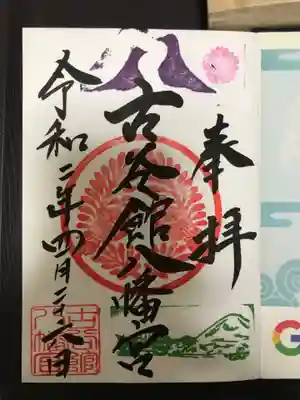 奉拝
古谷館八幡宮
令和二年四月二十六日
G